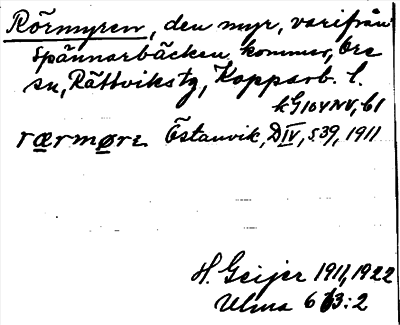 Rörmyren, den myr, varifrån
Spännarbäcken kommer, Ore
sn, Rättviks tg, Kopparb. l.
rærmøre Östanvik, D IV, s 39, 1911
H. Geijer 1911, 1922
Ulma 6 63:2